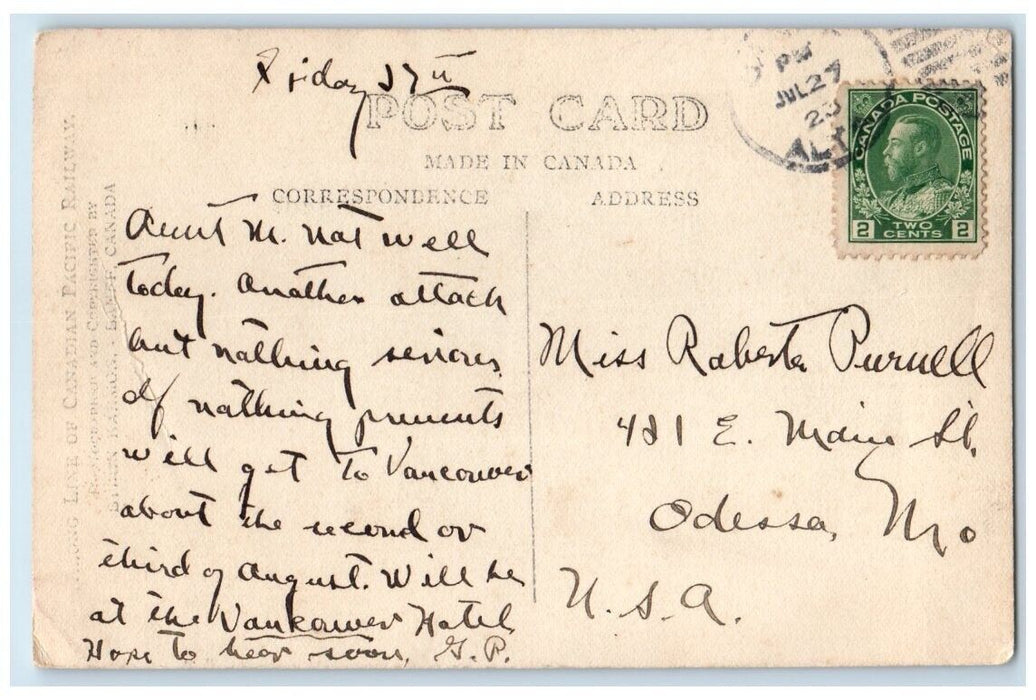 Friday 27th
POST CARD
MADE IN CANADA
CORRESPONDENCE
ADDRESS
PM
JUL 27
23
ALTA
CANADA POSTAGE
2 TWO CENTS 2
Aunt M. not well
today. Another attack
but nothing serious.
If nothing prevents
will get to Vancouver
about the second or
third of August. Will be
at the Vancouver Hotel.
Hope to hear soon, G.P.
Miss Roberta Purnell
421 E. Main St.
Odessa, Mo
U.S.A.
ALONG LINE OF CANADIAN PACIFIC RAILWAY.
PHOTOGRAPHED AND COPYRIGHTED BY
BYRON HARMON, - BANFF, CANADA